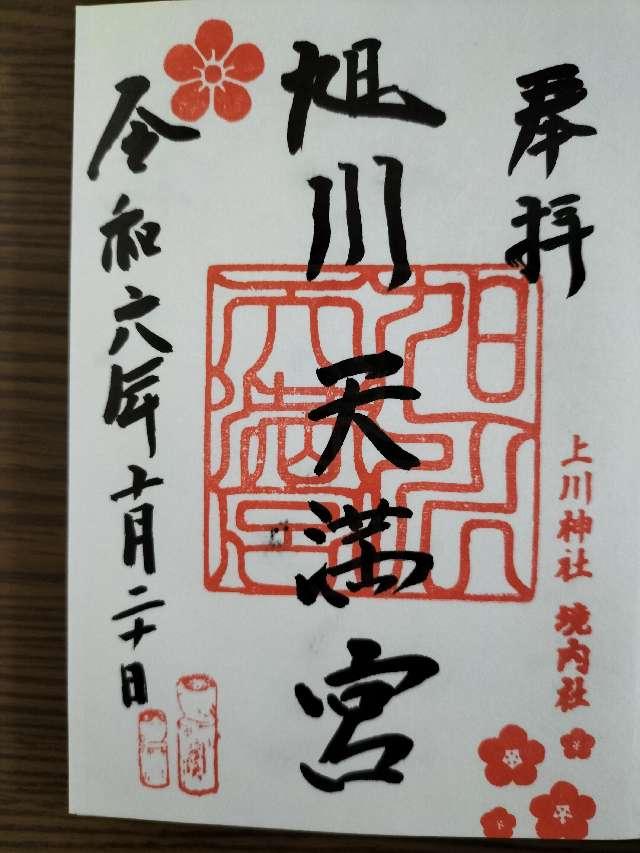 奉拝
上川神社 境内社
旭川天満宮
令和六年十月二十日